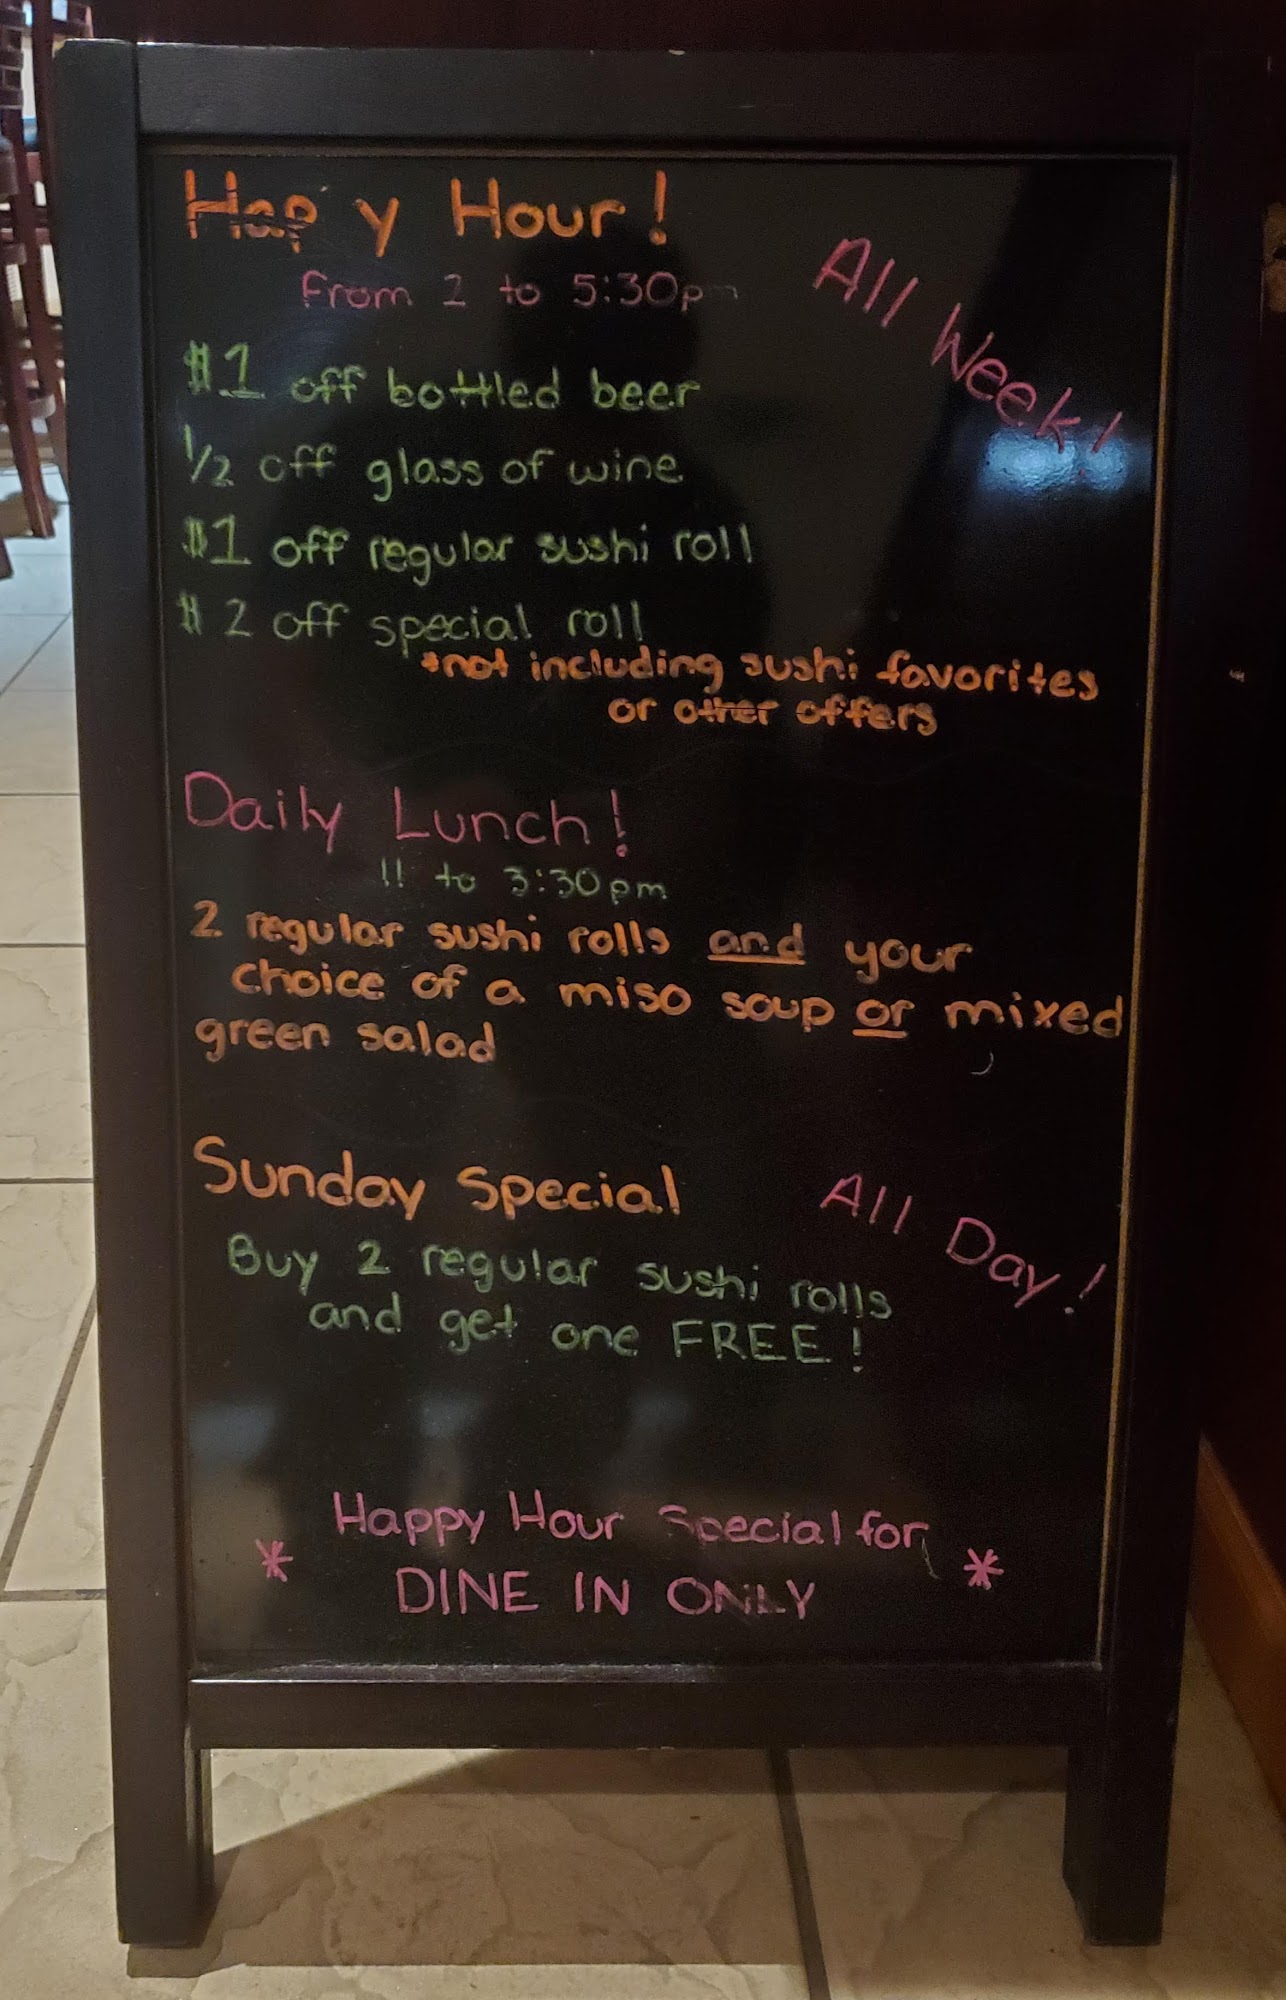 Hap y Hour!
from 2 to 5:30pm
All Week!
$1 off bottled beer
½ off glass of wine
$1 off regular sushi roll
$2 off special roll
*not including sushi favorites
or other offers
Daily Lunch!
11 to 3:30pm
2 regular sushi rolls and your
choice of a miso soup or mixed
green salad
Sunday Special
All Day!
Buy 2 regular sushi rolls
and get one FREE!
Happy Hour Special for
* DINE IN ONLY *